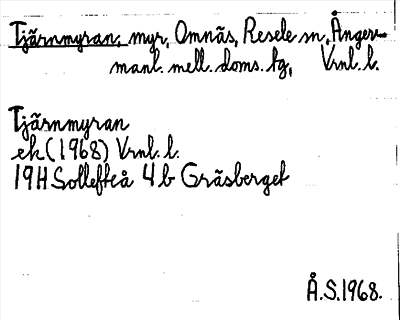 Tjärnmyran, myr, Omnäs, Resele sn, Ånger-
manl. mell. doms. tg, Vrnl. l.
Tjärnmyran
ek (1968) Vrnl. l.
19H Sollefteå 4 b Gräsberget
Å.S. 1968.